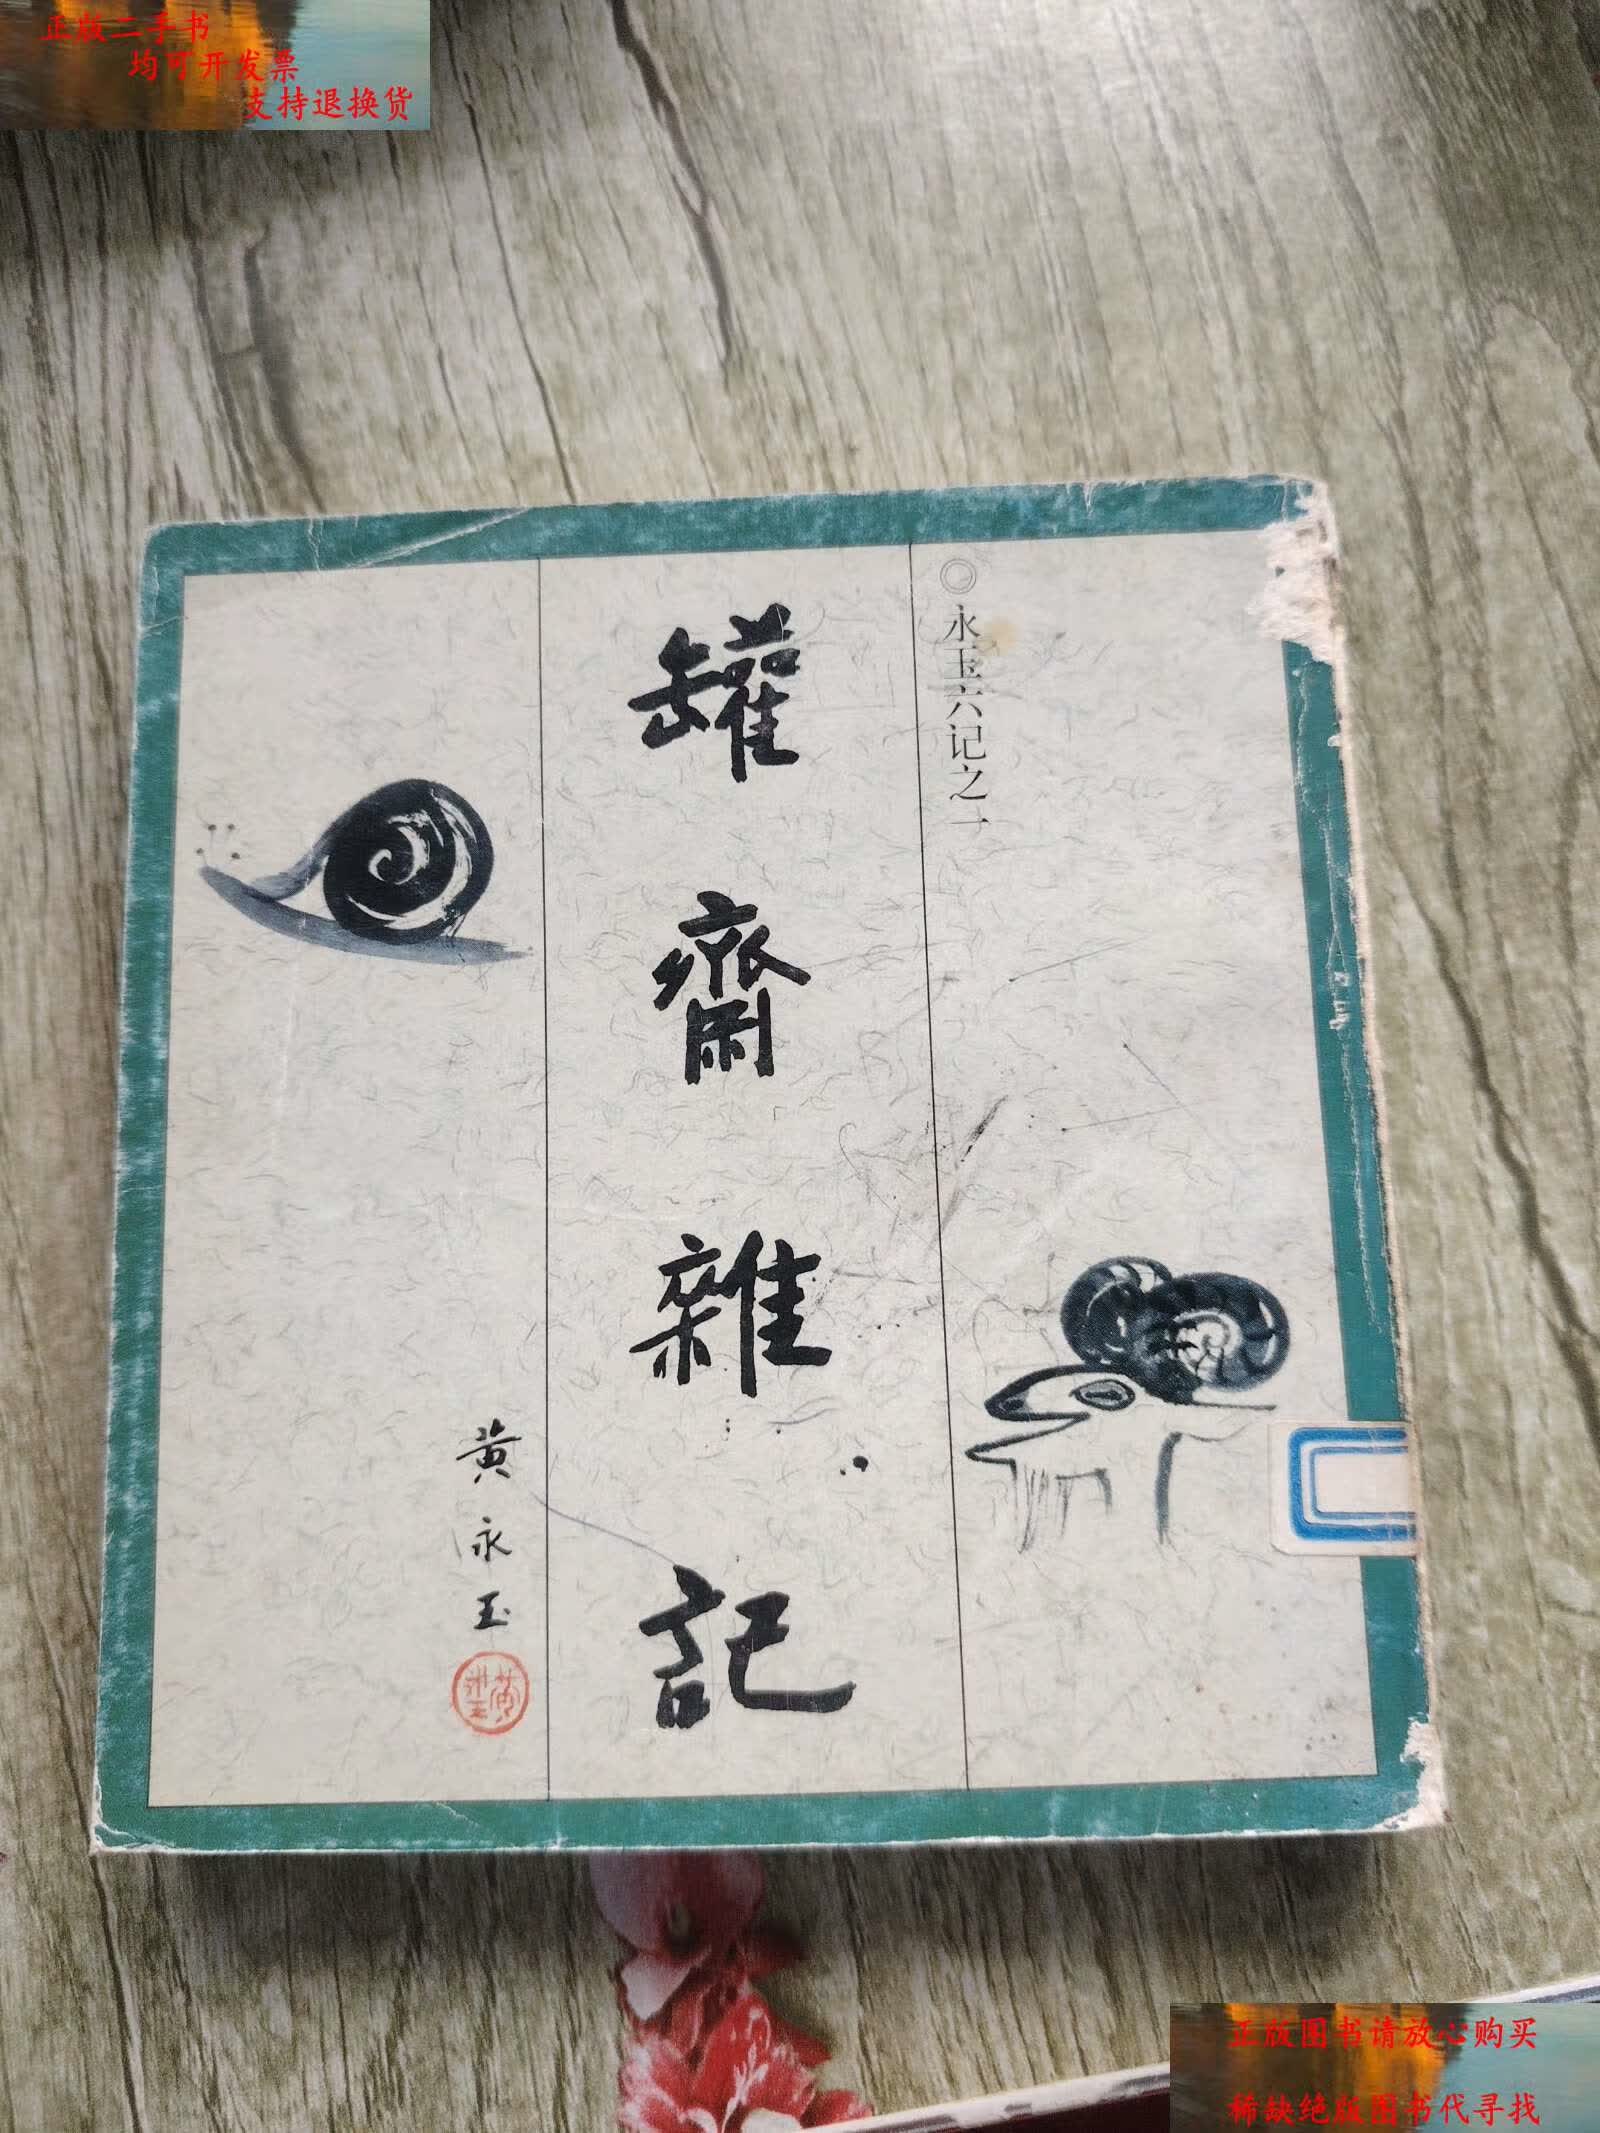 正版二手书
均可开发票
支持退换货
◎永玉六记之一
罐齋雜記
黄永玉
黄永玉
正版图书请放心购买
稀缺绝版图书代寻找